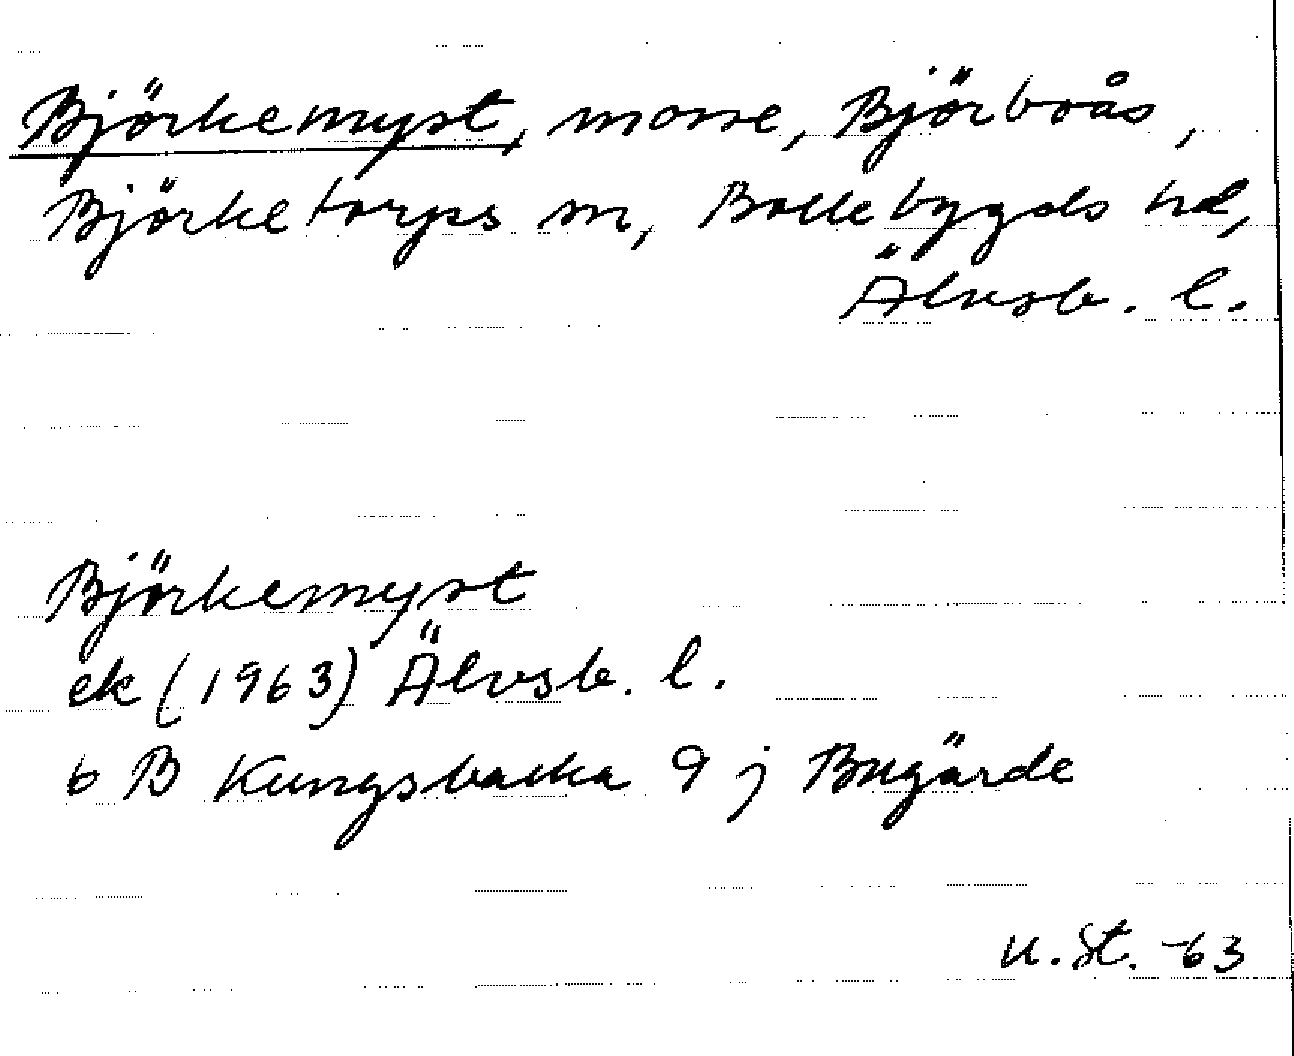 Björkemyst, mosse, Björboås,
Björketorps sn, Bollebygds hd,
Älvsb. l.
Björkemyst
ek (1963) Älvsb. l.
6 B Kungsbacka 9 j Bugärde
u. St. -63